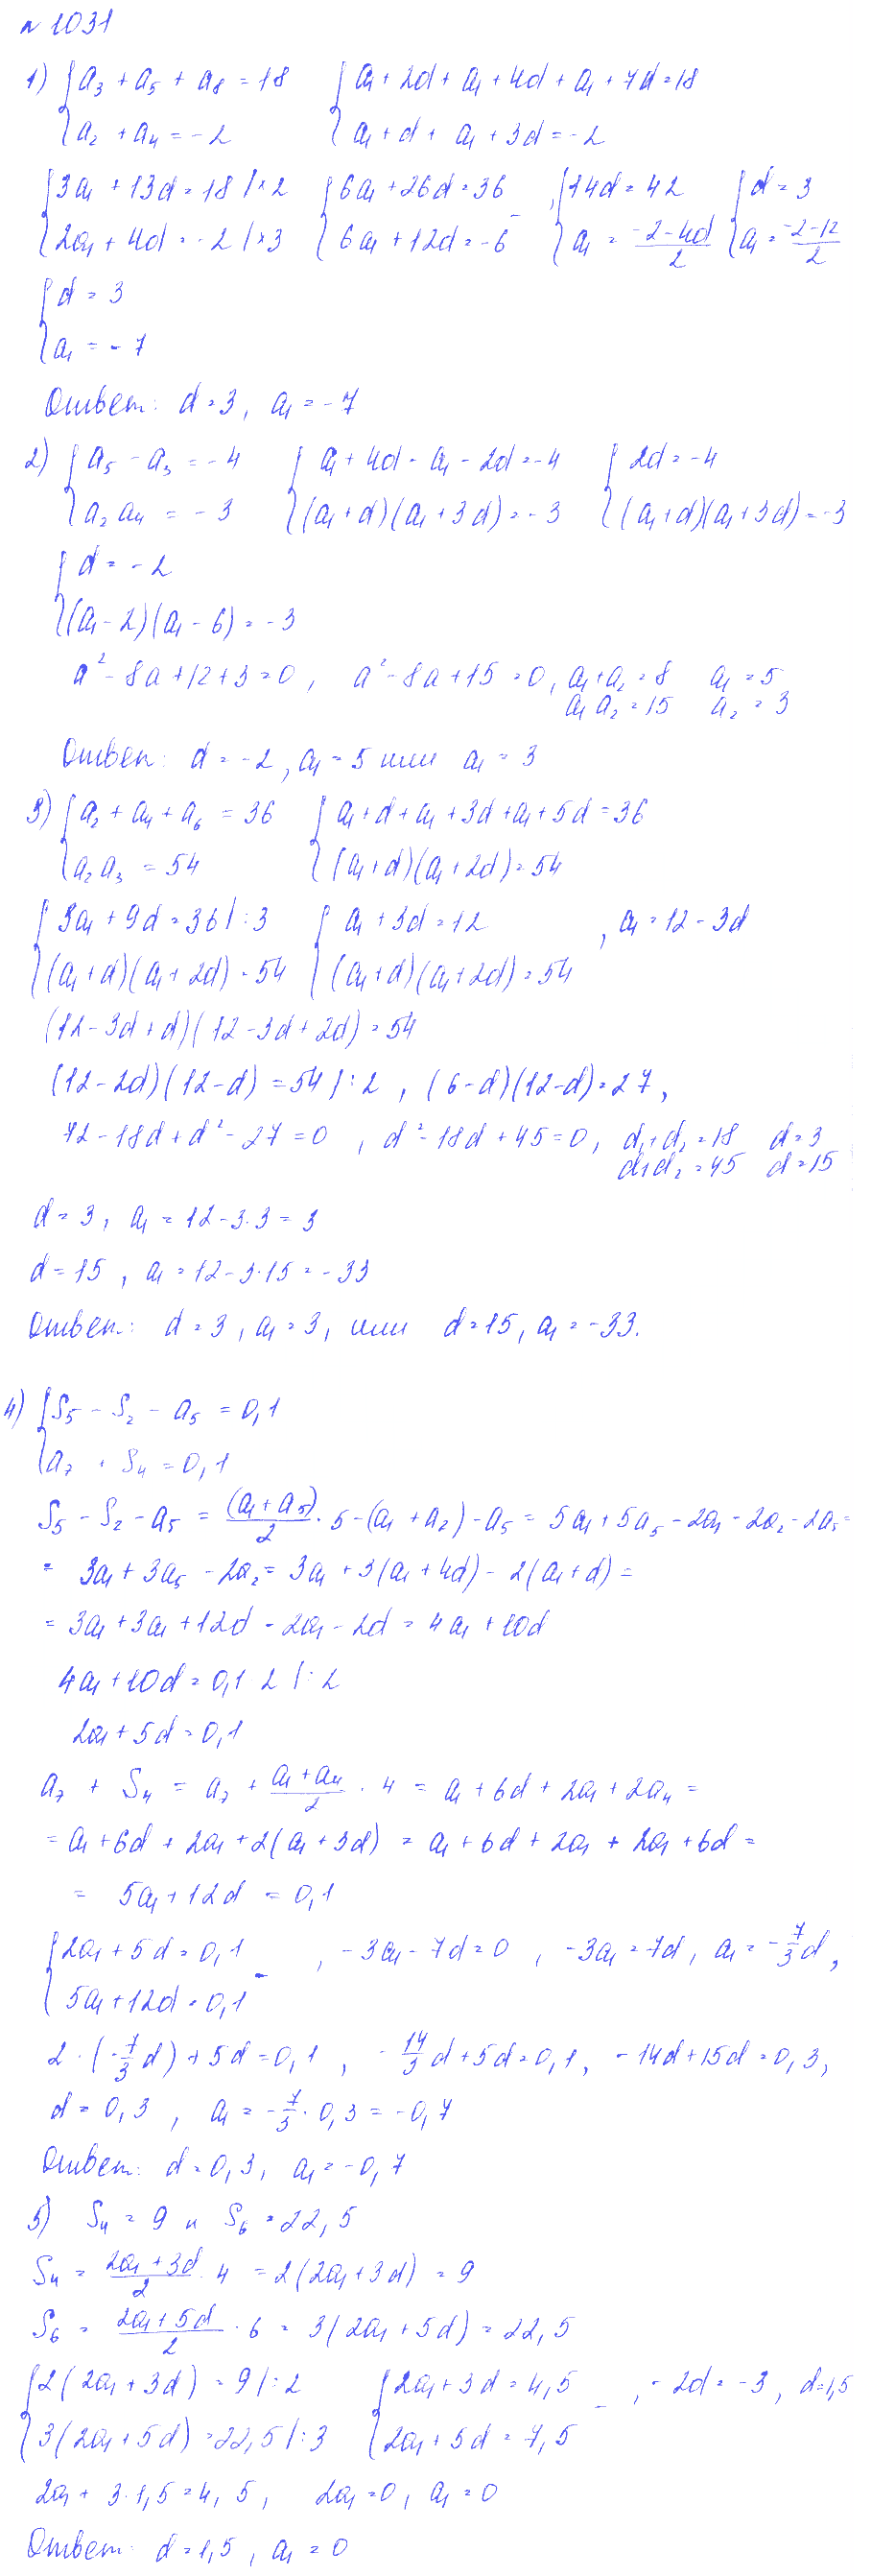 № 1031
1) { a₃ + a₅ + a₈ = 18   { a₁ + 2d + a₁ + 4d + a₁ + 7d = 18
{ a₂ + a₄ = -2   { a₁ + d + a₁ + 3d = -2
{ 3a₁ + 13d = 18 |×2   { 6a₁ + 26d = 36 - , { 14d = 42   { d = 3
{ 2a₁ + 4d = -2 |×3   { 6a₁ + 12d = -6   { a₁ = (-2-4d)/2   { a₁ = (-2-12)/2
{ d = 3
{ a₁ = -7
Ответ: d = 3, a₁ = -7
2) { a₅ - a₃ = -4   { a₁ + 4d - a₁ - 2d = -4   { 2d = -4
{ a₂ a₄ = -3   { (a₁ + d)(a₁ + 3d) = -3   { (a₁ + d)(a₁ + 3d) = -3
{ d = -2
{ (a₁ - 2)(a₁ - 6) = -3
a² - 8a + 12 + 3 = 0, a² - 8a + 15 = 0, a₁ + a₂ = 8   a₁ = 5
a₁ a₂ = 15   a₂ = 3
Ответ: d = -2, a₁ = 5 или a₁ = 3
3) { a₂ + a₄ + a₆ = 36   { a₁ + d + a₁ + 3d + a₁ + 5d = 36
{ a₂ a₃ = 54   { (a₁ + d)(a₁ + 2d) = 54
{ 3a₁ + 9d = 36 |:3   { a₁ + 3d = 12   , a₁ = 12 - 3d
{ (a₁ + d)(a₁ + 2d) = 54   { (a₁ + d)(a₁ + 2d) = 54
(12 - 3d + d)(12 - 3d + 2d) = 54
(12 - 2d)(12 - d) = 54 |:2 , (6 - d)(12 - d) = 27,
72 - 18d + d² - 27 = 0 , d² - 18d + 45 = 0, d₁ + d₂ = 18   d = 3
d₁d₂ = 45   d = 15
d = 3, a₁ = 12 - 3·3 = 3
d = 15, a₁ = 12 - 3·15 = -33
Ответ: d = 3, a₁ = 3, или d = 15, a₁ = -33.
4) { S₅ - S₂ - a₅ = 0,1
{ a₇ + S₄ = 0,1
S₅ - S₂ - a₅ = (a₁ + a₅)/2 · 5 - (a₁ + a₂) - a₅ = 5a₁ + 5a₅ - 2a₁ - 2a₂ - 2a₅ =
= 3a₁ + 3a₅ - 2a₂ = 3a₁ + 3(a₁ + 4d) - 2(a₁ + d) =
= 3a₁ + 3a₁ + 12d - 2a₁ - 2d = 4a₁ + 10d
4a₁ + 10d = 0,1 2 |:2
2a₁ + 5d = 0,1
a₇ + S₄ = a₇ + (a₁ + a₄)/2 · 4 = a₁ + 6d + 2a₁ + 2a₄ =
= a₁ + 6d + 2a₁ + 2(a₁ + 3d) = a₁ + 6d + 2a₁ + 2a₁ + 6d =
= 5a₁ + 12d = 0,1
{ 2a₁ + 5d = 0,1 - , -3a₁ - 7d = 0 , -3a₁ = 7d, a₁ = -7/3 d,
{ 5a₁ + 12d = 0,1
2 · (-7/3 d) + 5d = 0,1 , -14/3 d + 5d = 0,1, -14d + 15d = 0,3,
d = 0,3 , a₁ = -7/3 · 0,3 = -0,7
Ответ: d = 0,3, a₁ = -0,7
5) S₄ = 9 и S₆ = 22,5
S₄ = (2a₁ + 3d)/2 · 4 = 2(2a₁ + 3d) = 9
S₆ = (2a₁ + 5d)/2 · 6 = 3(2a₁ + 5d) = 22,5
{ 2(2a₁ + 3d) = 9 |:2   { 2a₁ + 3d = 4,5 - , -2d = -3, d = 1,5
{ 3(2a₁ + 5d) = 22,5 |:3   { 2a₁ + 5d = 7,5
2a₁ + 3·1,5 = 4,5, 2a₁ = 0, a₁ = 0
Ответ: d = 1,5, a₁ = 0